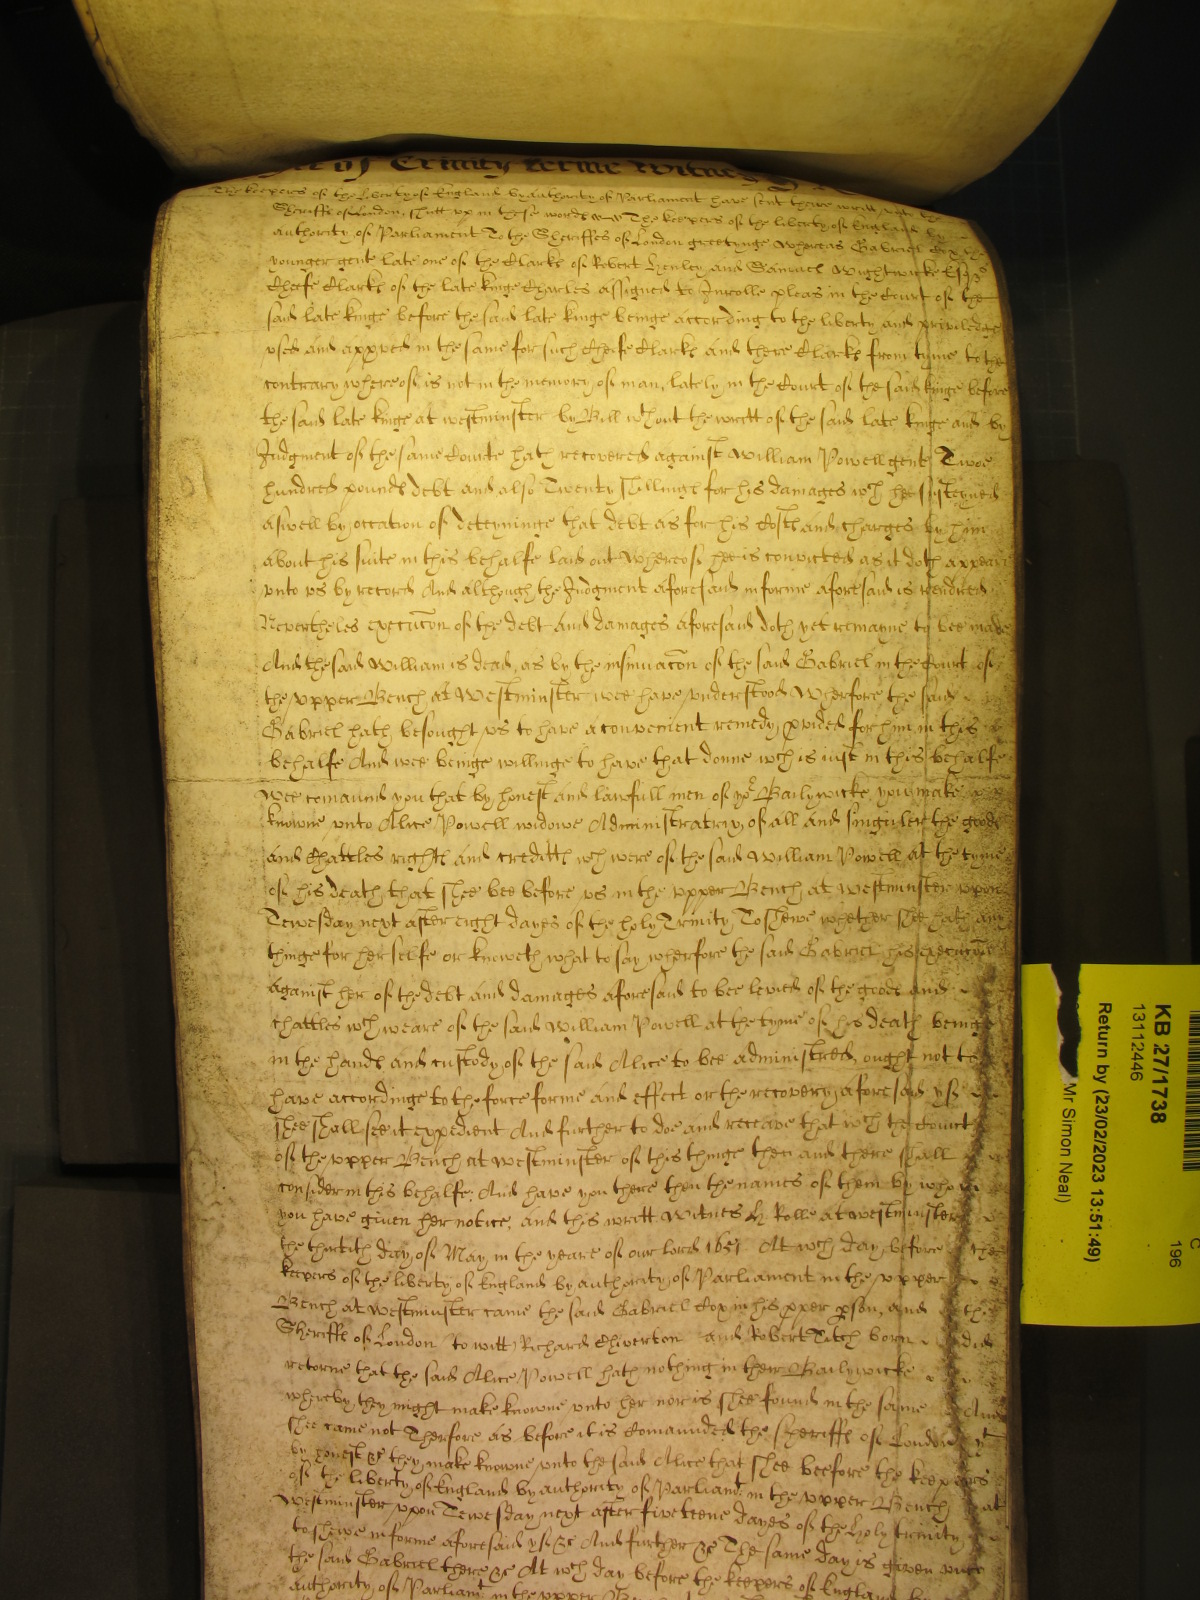 of Trinity terme Witnes
The keepers of the liberty of England by authority of Parliament have sent there writt unto the
Sheriffs of London shutt up in these words The keepers of the liberty of England by
authority of Parliament To the Sheriffes of London greetinge Whereas Gabriel Cox the
younger gente late one of the Clarks of Robert Henley and Samuel Wightwicke Esqrs
Cheefe Clarke of the late kinge Charles assigned to Inrolle pleas in the Court of the
said late kinge before the said late kinge beinge according to the liberty and priviledge
used and appved in the same for such Cheife Clarke and there Clarks from tyme to the
contrary whereof is not in the memory of man, lately in the Court of the said kinge before
the said late kinge at westminster by Bill wthout the writt of the said late kinge and by
Judgment of the same Courte hath recovered against William Powell gente Twoe
hundred pounds debt and also Twenty shillings for his damages wch hee susteyned
aswell by occation of deteyninge that debt as for his Costs and charges by him
about his suite in this behalfe laid out Whereof hee is convicted as it doth appeare
unto us by record And although the Judgment aforesaid in forme aforesaid is rendred
Neverthelesse execucon of the debt and damages aforesaid doth yet remayne to bee made
And the said William is dead, as by the insinuacon of the said Gabriel in the Court of
the upper Bench at Westminster wee have understood Wherfore the said
Gabriel hath besought us to have a convenient remedy pvided for him in this
behalfe And wee beinge willinge to have that donne wch is iust in this behalfe
Wee comaund you that by honest and lawfull men of yor Bailywicke you make
knowne unto Alice Powell widowe Administratrix of all and singuler the goods
and Chattles rights and creditts wch were of the said William Powell at the tyme
of his death that shee bee before us in the upper Bench at westminster upon
Tewesday next after eight dayes of the holy Trinity To shewe whether shee hath any
thinge for her selfe or knoweth what to say wherfore the said Gabriel his execucon
against her of the debt and damages aforesaid to bee levied of the goods and
chattles wch weare of the said William Powell at the tyme of his death beinge
in the hands and custody of the said Alice to bee administred, ought not to
have accordinge to the force forme and effect or the recovery aforesaid yf
shee shall see it expedient And further to doe and receave that wch the Court
of the upper Bench at westminster of this thinge then and there shall
consider in this behalfe; And have you there then the names of them by whom
you have given her notice, and this writt Witnes H Rolle at westminster
the thirtith day of May in the yeare of our lord 1651 At wch day before the
keepers of the liberty of England by authority of Parliament in the upper
Bench at westminster came the said Gabriel Cox in his pper pson, and the
Sheriffs of London to witt Richard Chiverton and Robert Titchborn did
retorne that the said Alice Powell hath nothing in their Bailywicke
whereby they might make knowne unto her nor is shee found in the same And
shee came not Therfore as before it is Comaunded the Sheriffs of London yt
by honest &c they make knowne unto the said Alice that shee bee before the keepers
of the liberty of England by authority of Parliamt in the upper Bench at
Westminster upon Tewesday next after fiveteene dayes of the Holy trinity
to shewe in forme aforesaid yf &c And further &c The same day is given unto
the said Gabriel there &c At wch day before the keepers of England by
authority of Parliamt in the upper Bench
KB 27/1738
13112446
Return by (23/02/2023 13:51:49)
Mr Simon Neal)
C
196